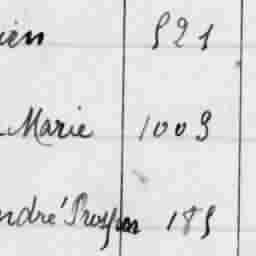 ien 521
Marie 1009
ndré Prosper 185